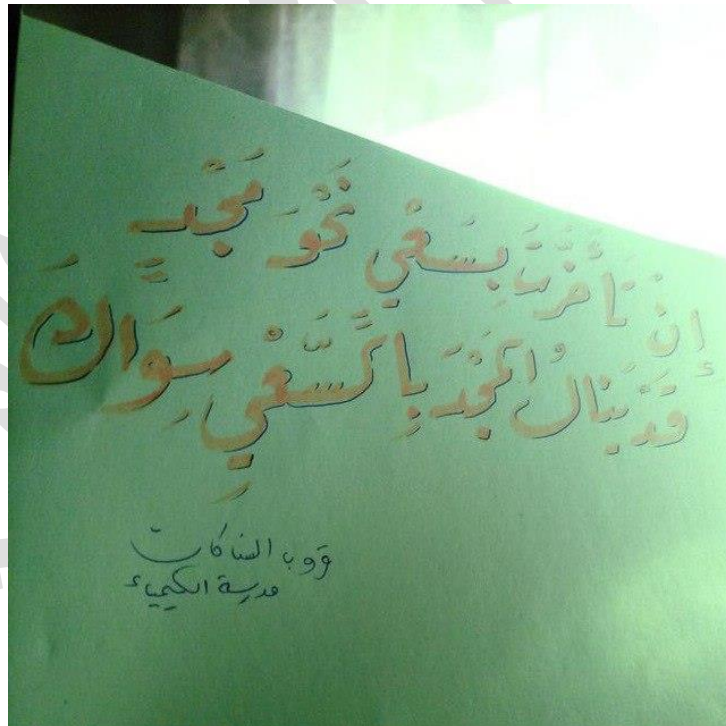 إِنْ تَأَخَّرْتَ بِسَعْيٍ نَحْوَ مَجْدٍ
قَدْ يَنَالُ المَجْدَ بِالسَّعْيِ سِوَاكَ
قروب الشاكات
مدرسة الكيمياء